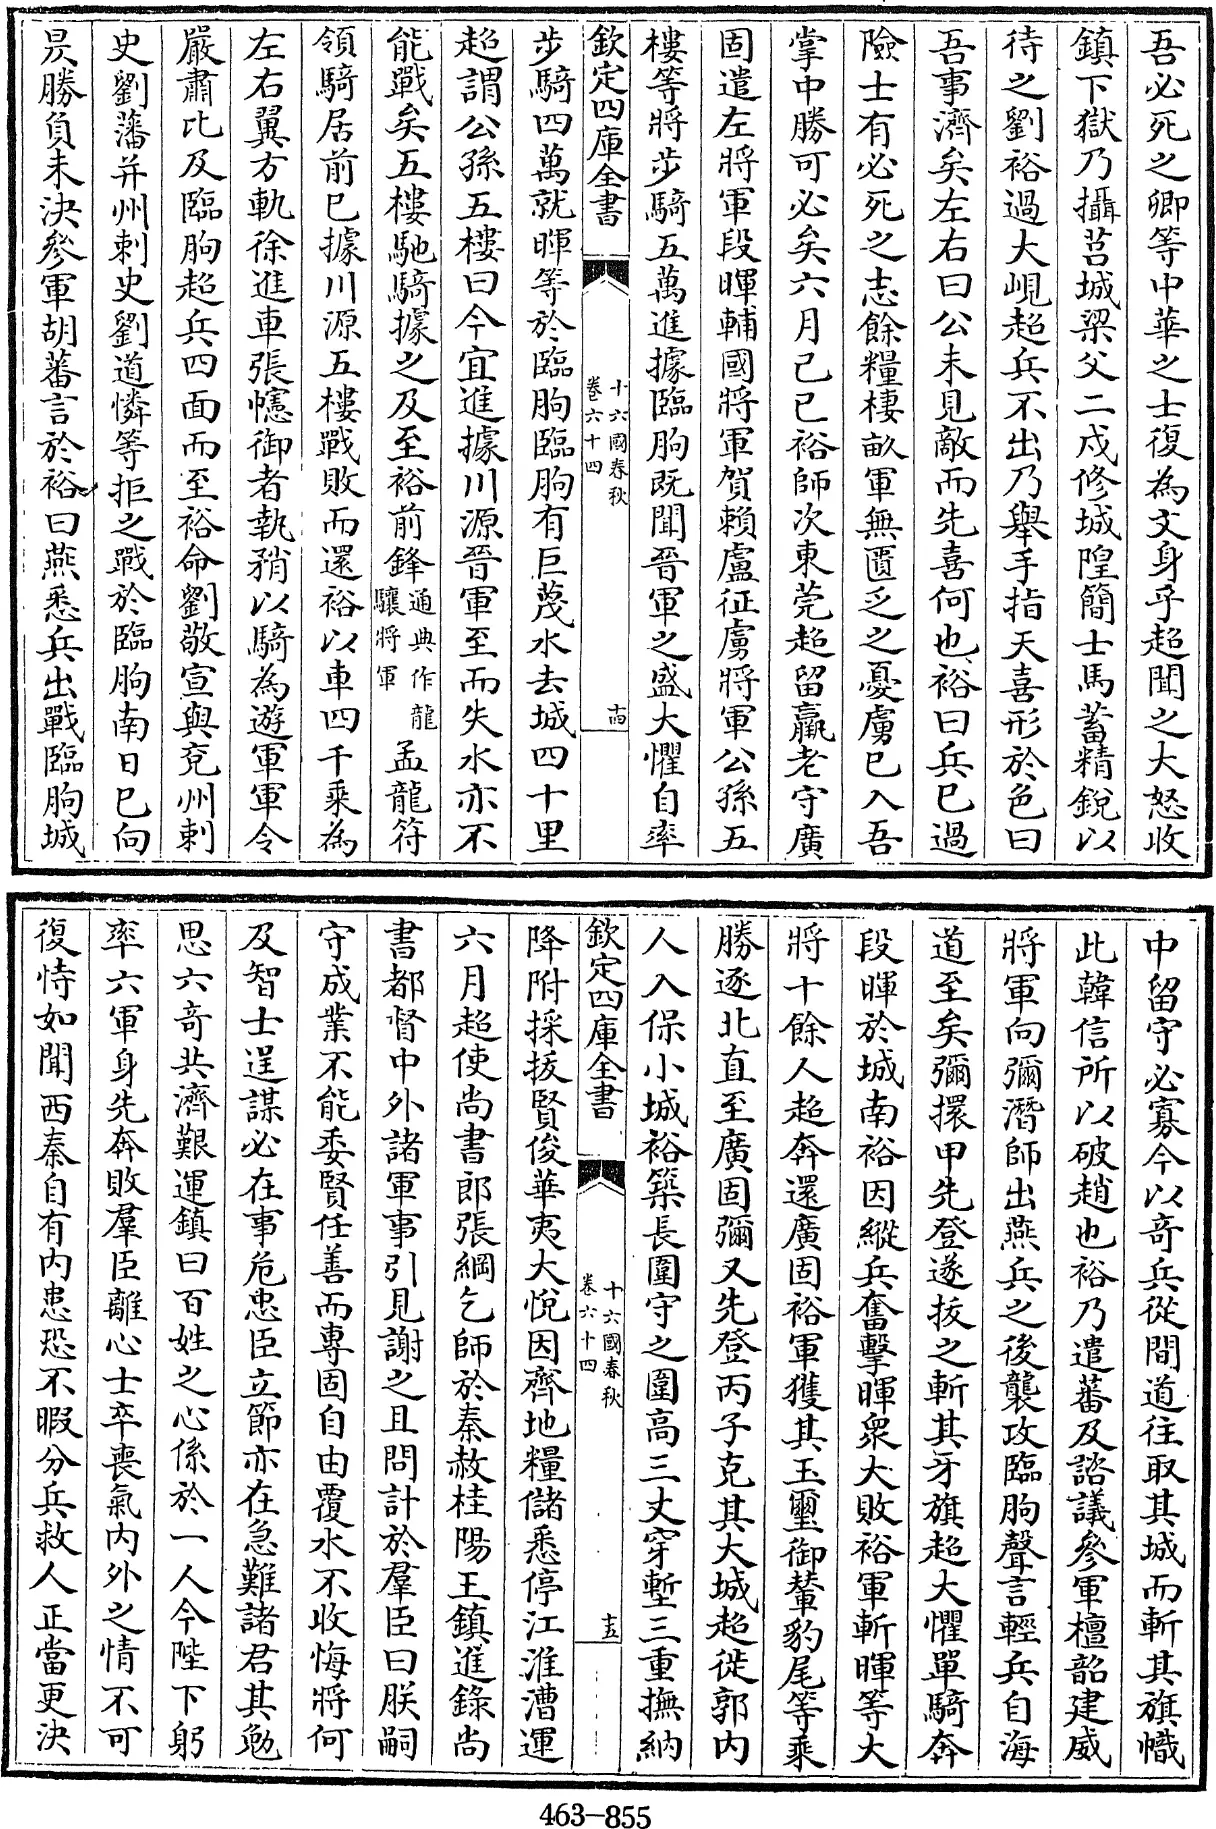 吾必死之卿等中華之士復為文身乎超聞之大怒收
鎮下獄乃攝莒城梁父二戍修城隍簡士馬蓄精銳以
待之劉裕過大峴超兵不出乃舉手指天喜形於色曰
吾事濟矣左右曰公未見敵而先喜何也裕曰兵已過
險士有必死之志餘糧棲畝軍無匱乏之憂虜已入吾
掌中勝可必矣六月己巳裕師次東莞超留羸老守廣
固遣左將軍段暉輔國將軍賀賴盧征虜將軍公孫五
樓等將步騎五萬進據臨朐既聞晉軍之盛大懼自率
欽定四庫全書
十六國春秋
卷六十四
十四
步騎四萬就暉等於臨朐臨朐有巨蔑水去城四十里
超謂公孫五樓曰今宜進據川源晉軍至而失水亦不
能戰矣五樓馳騎據之及至裕前鋒通典作龍驤將軍孟龍符
領騎居前已據川源五樓戰敗而還裕以車四千乘為
左右翼方軌徐進車張幰御者執矟以騎為遊軍軍令
嚴肅比及臨朐超兵四面而至裕命劉敬宣與兗州刺
史劉藩并州刺史劉道憐等拒之戰於臨朐南日已向
昃勝負未決參軍胡蕃言於裕曰燕悉兵出戰臨朐城
中留守必寡今以奇兵從間道往取其城而斬其旗幟
此韓信所以破趙也裕乃遣蕃及諮議參軍檀韶建威
將軍向彌潛師出燕兵之後襲攻臨朐聲言輕兵自海
道至矣彌擐甲先登遂拔之斬其牙旗超大懼單騎奔
段暉於城南裕因縱兵奮擊暉衆大敗裕軍斬暉等大
將十餘人超奔還廣固裕軍獲其玉璽御輦豹尾等乘
勝逐北直至廣固彌又先登丙子克其大城超徙郭內
人入保小城裕築長圍守之圍高三丈穿塹三重撫納
欽定四庫全書
十六國春秋
卷六十四
十五
降附採拔賢俊華夷大悅因齊地糧儲悉停江淮漕運
六月超使尚書郎張綱乞師於秦赦桂陽王鎮進錄尚
書都督中外諸軍事引見謝之且問計於羣臣曰朕嗣
守成業不能委賢任善而專固自由覆水不收悔將何
及智士逞謀必在事危忠臣立節亦在急難諸君其勉
思六奇共濟艱運鎮曰百姓之心係於一人今陛下躬
率六軍身先奔敗羣臣離心士卒喪氣內外之情不可
復恃如聞西秦自有內患恐不暇分兵救人正當更決
463-855